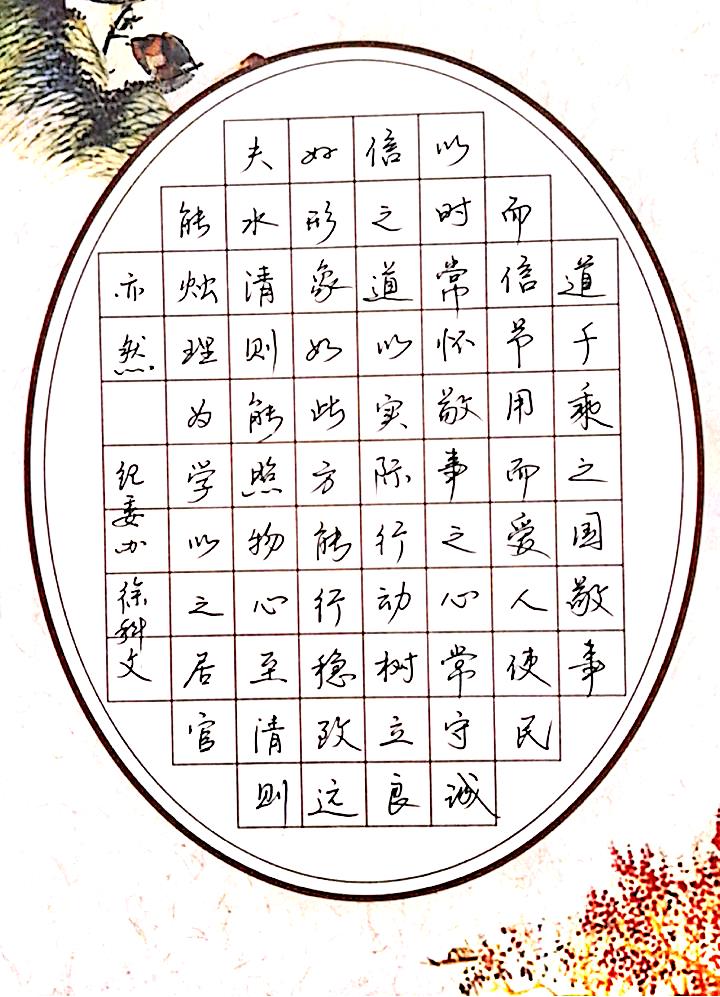 道千乘之国敬事
而信节用而爱人使民
以时常怀敬事之心常守诚
信之道以实际行动树立良
好形象如此方能行稳致远
夫水清则能照物心至清则
能烛理为学以之居官
亦然
纪委办徐科文